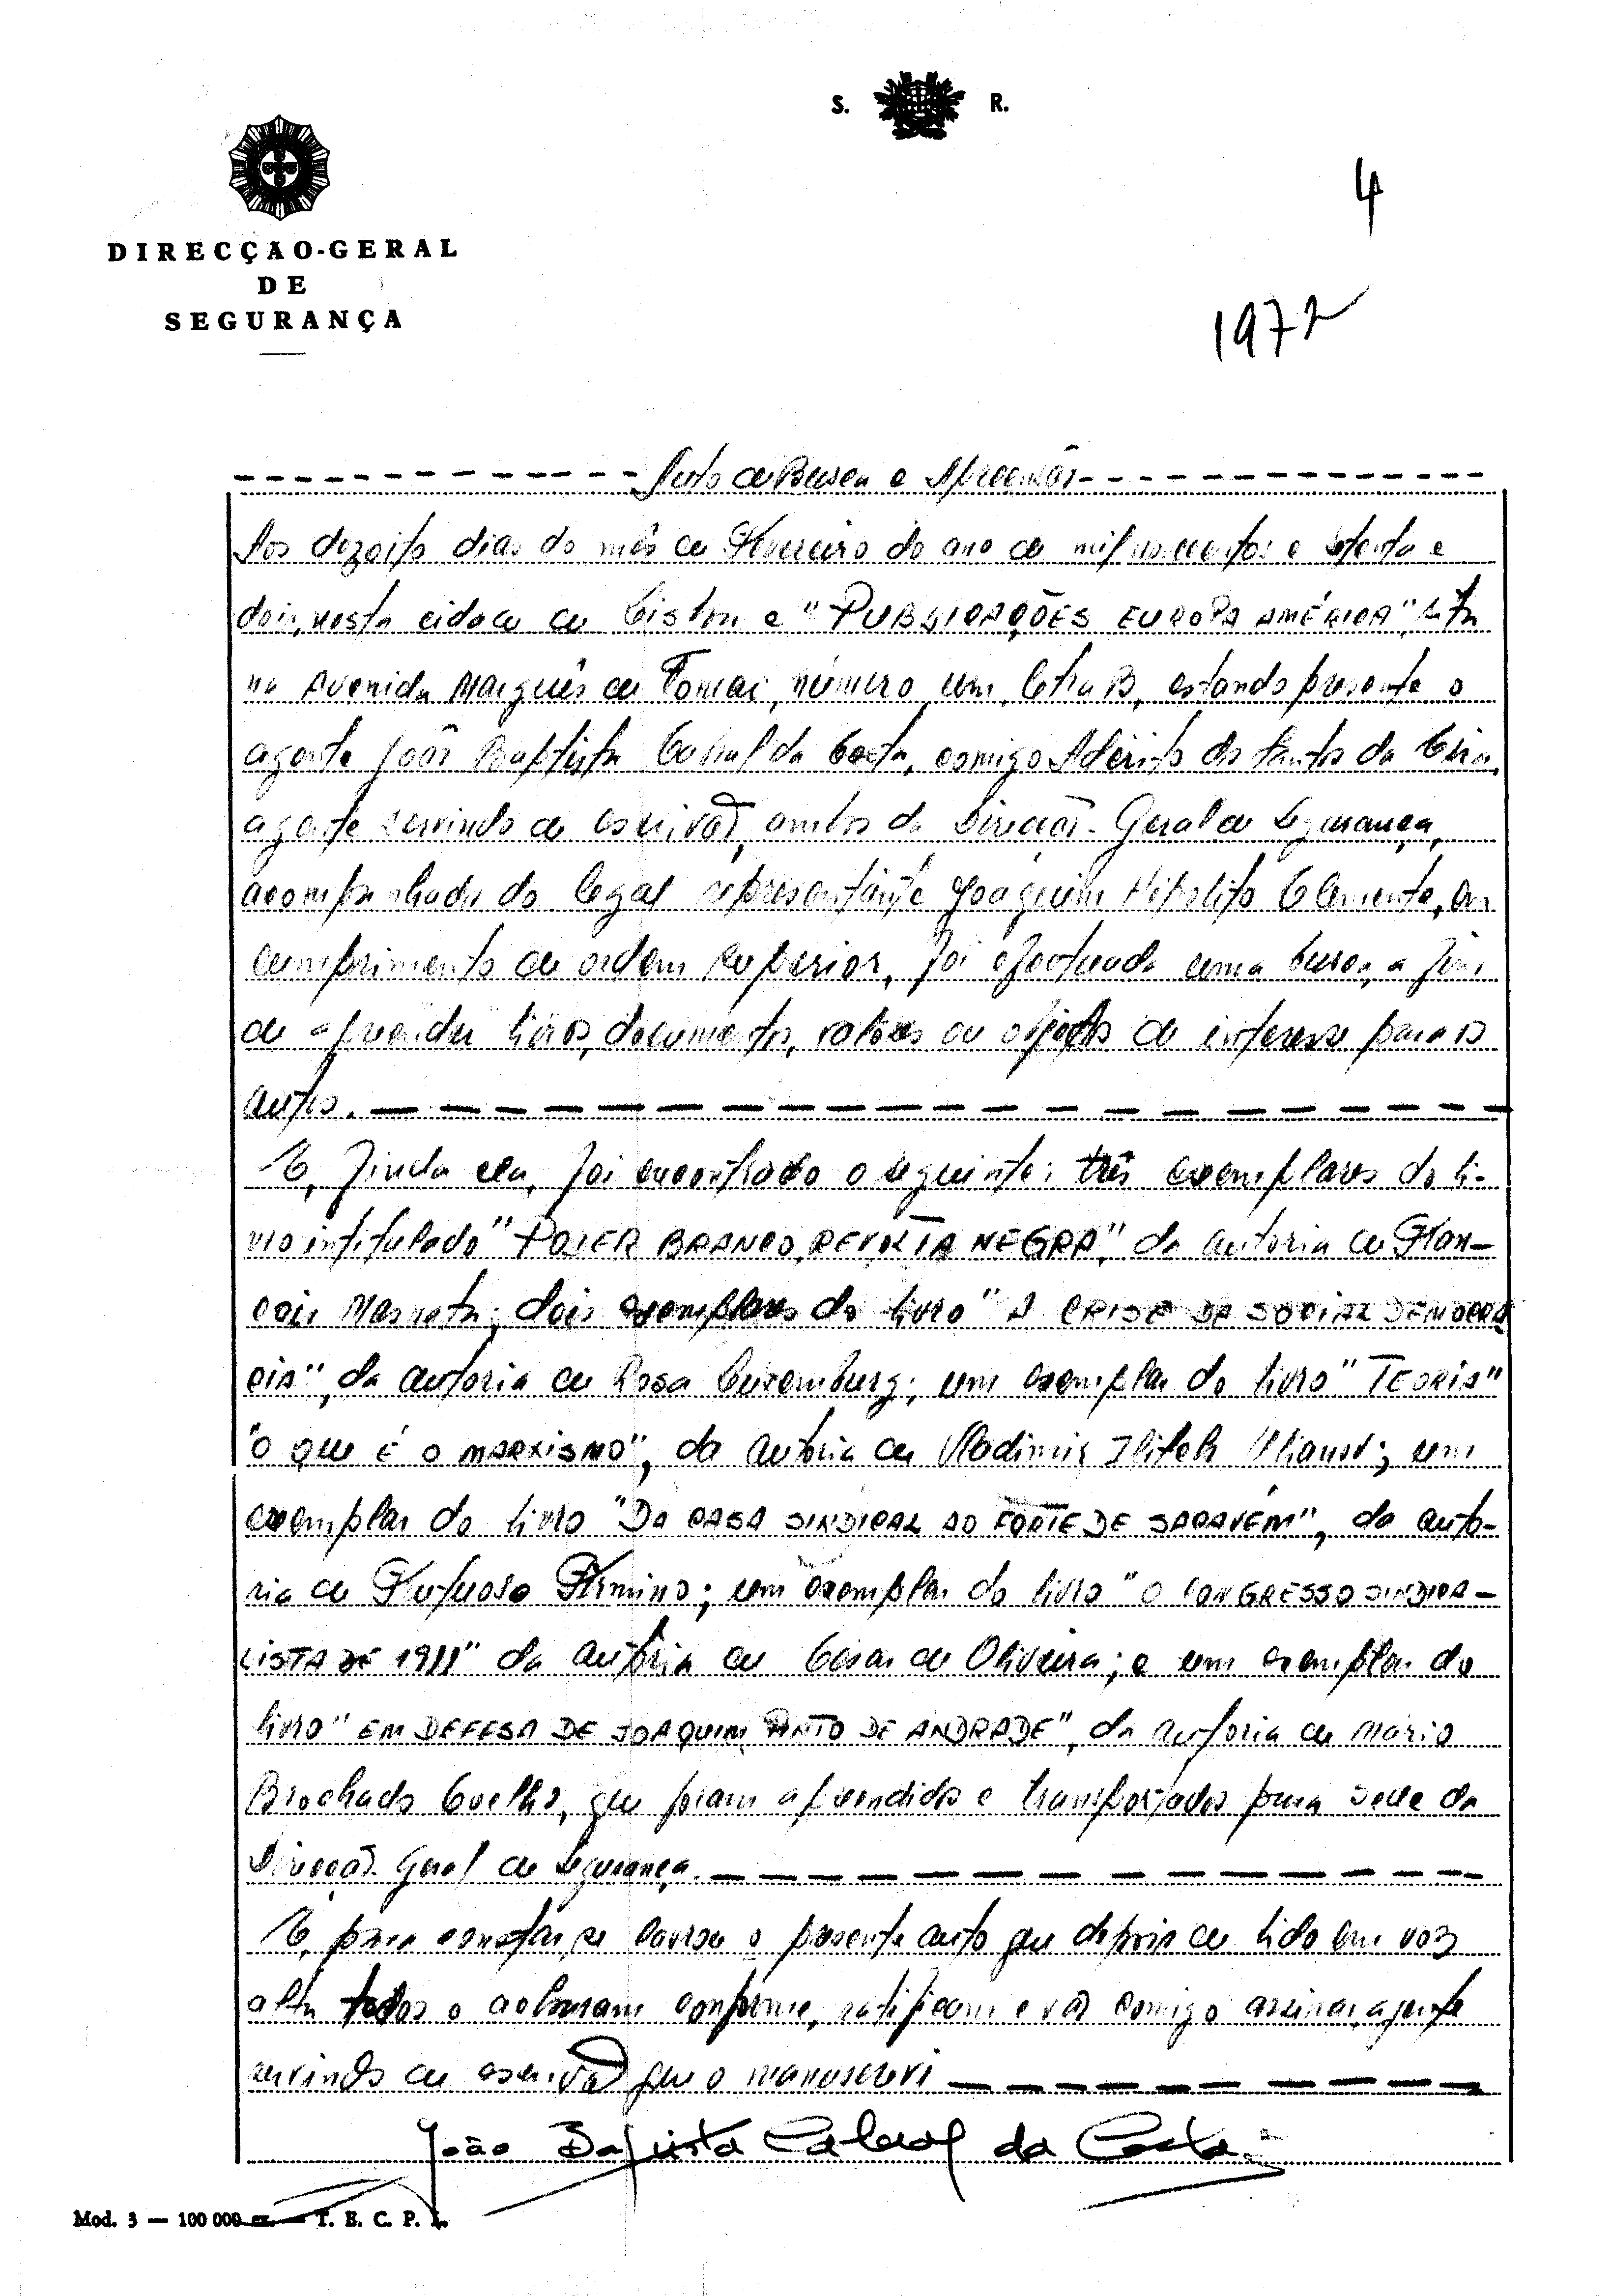 S. R.
4
DIRECÇÃO-GERAL
DE
SEGURANÇA
1972
Auto de Busca e Apreensão
Aos dezoito dias do mês de Fevereiro do ano de mil novecentos e setenta e
dois, nesta cidade de Lisboa e "PUBLICAÇÕES EUROPA AMÉRICA", sita
na Avenida Marquês de Tomar, número um, letra B, estando presente o
agente João Baptista Cabral da Costa, comigo Adérito dos Santos da
agente servindo de escrivão, ambos da Direcção-Geral de Segurança,
acompanhado do legal representante Joaquim Hipólito Clemente, em
cumprimento de ordem superior, foi efectuada uma busca, a fim
de apreender livros, documentos, valores ou objectos de interesse para os
autos.
E, finda ela, foi encontrado o seguinte: três exemplares do li-
vro intitulado "PODER BRANCO, REVOLTA NEGRA", da autoria de Fran-
çois Masnata; dois exemplares do livro "A CRISE DA SOCIAL DEMOCRA
CIA", da autoria de Rosa Luxemburg; um exemplar do livro "TEORIA"
"O que É O MARXISMO", da autoria de Vladimir Ilitch Ulianov; um
exemplar do livro "DA CASA SINDICAL AO FORTE DE SACAVÉM", da auto-
ria de Frutuoso Firmino; um exemplar do livro "O CONGRESSO SINDICA-
LISTA DE 1911" da autoria de César de Oliveira; e um exemplar do
livro "EM DEFESA DE JOAQUIM PINTO DE ANDRADE", da autoria de Mário
Brochado Coelho, que foram apreendidos e transportados para sede da
Direcção-Geral de Segurança.
E, para constar, se lavrou o presente auto que depois de lido em voz
alta todos o acharam conforme, ratificam e vão comigo assinar, agente
servindo de escrivão que o manuscrevi
João Baptista Cabral da Costa
Mod. 3 — 100 000 ex. — T. E. C. P. L.